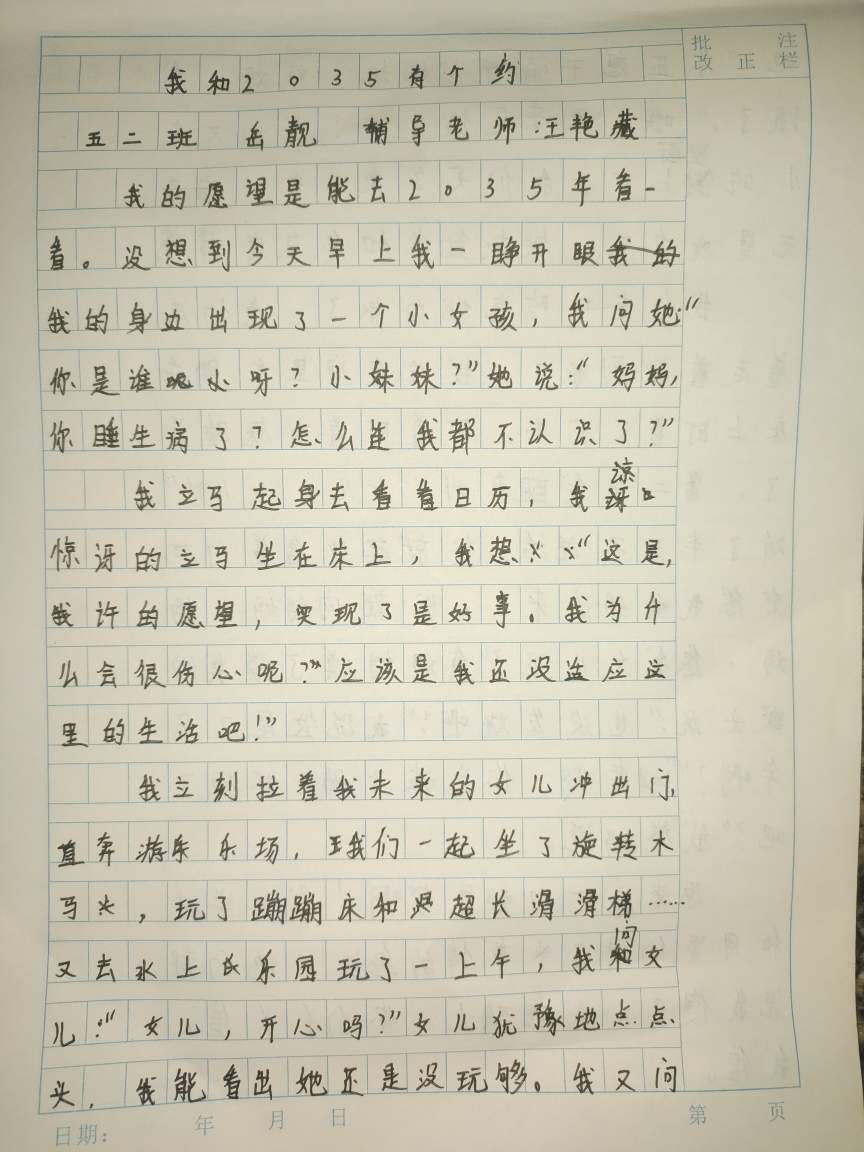 批注
改正栏
我和2035有个约
五二班 岳靓 辅导老师:汪艳藏
我的愿望是能去2035年看一
看。没想到今天早上我一睁开眼我的
我的身边出现了一个小女孩，我问她:“
你是谁呀?小妹妹?”她说:“妈妈,
你睡生病了?怎么连我都不认识了?”
我立马起身去看看日历，我惊讶
惊讶的立马坐在床上，我想:“这是,
我许的愿望，实现了是好事。我为什
么会很伤心呢?”应该是我还没适应这
里的生活吧!”
我立刻拉着我未来的女儿冲出门,
直奔游乐乐场，我们一起坐了旋转木
马，玩了蹦蹦床和超长滑滑梯……
又去水上乐园玩了一上午，我问女
儿:“女儿，开心吗?”女儿犹豫地点点
头，我能看出她还是没玩够。我又问
日期: 年 月 日 第 页